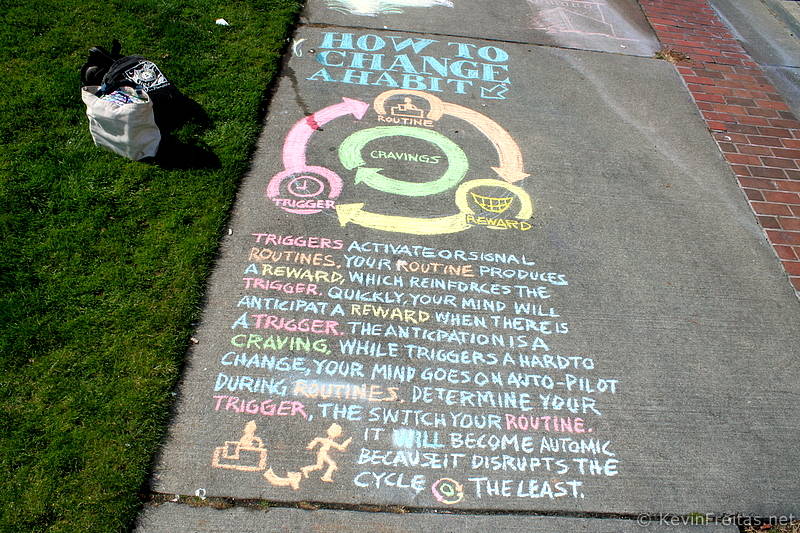 HOW TO
CHANGE
A HABIT
ROUTINE
CRAVINGS
TRIGGER
REWARD
TRIGGERS ACTIVATE OR SIGNAL
ROUTINES. YOUR ROUTINE PRODUCES
A REWARD, WHICH REINFORCES THE
TRIGGER. QUICKLY, YOUR MIND WILL
ANTICIPAT A REWARD WHEN THERE IS
A TRIGGER. THE ANTICPATION IS A
CRAVING, WHILE TRIGGERS A HARD TO
CHANGE, YOUR MIND GOES ON AUTO-PILOT
DURING ROUTINES. DETERMINE YOUR
TRIGGER, THE SWITCH YOUR ROUTINE.
IT WILL BECOME AUTOMIC
BECAUSE IT DISRUPTS THE
CYCLE THE LEAST.
© KevinFreitas.net